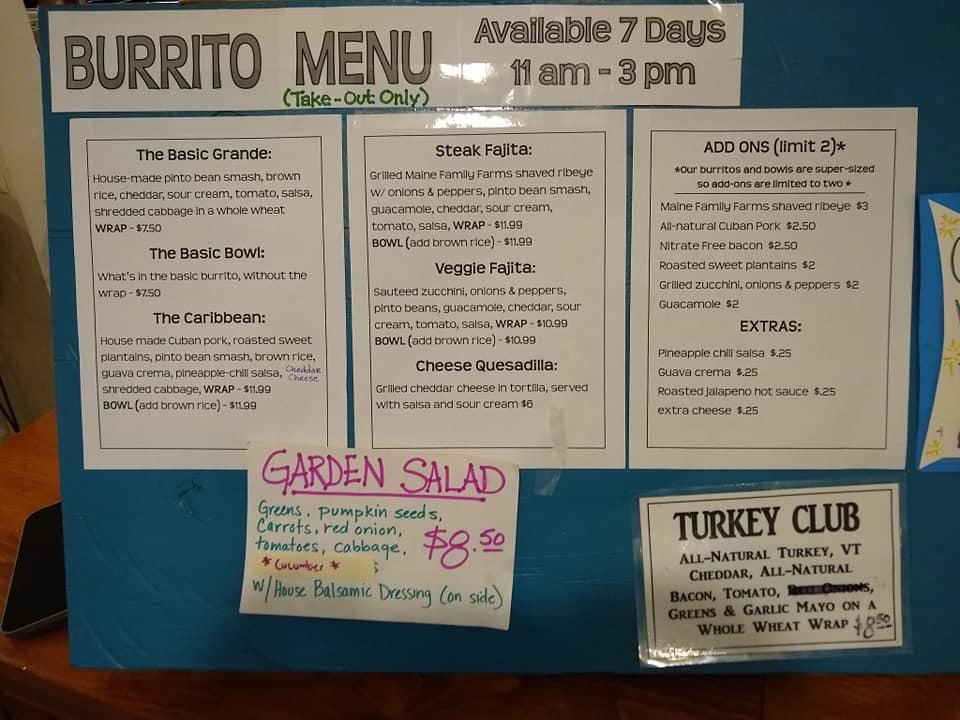 BURRITO MENU
(Take-Out Only)
Available 7 Days
11 am - 3 pm
The Basic Grande:
House-made pinto bean smash, brown
rice, cheddar, sour cream, tomato, salsa,
shredded cabbage in a whole wheat
WRAP - $7.50
The Basic Bowl:
What's in the basic burrito, without the
wrap - $7.50
The Caribbean:
House made Cuban pork, roasted sweet
plantains, pinto bean smash, brown rice,
guava crema, pineapple-chili salsa, Cheddar Cheese
shredded cabbage, WRAP - $11.99
BOWL (add brown rice) - $11.99
Steak Fajita:
Grilled Maine Family Farms shaved ribeye
w/ onions & peppers, pinto bean smash,
guacamole, cheddar, sour cream,
tomato, salsa, WRAP - $11.99
BOWL (add brown rice) - $11.99
Veggie Fajita:
Sauteed zucchini, onions & peppers,
pinto beans, guacamole, cheddar, sour
cream, tomato, salsa, WRAP - $10.99
BOWL (add brown rice) - $10.99
Cheese Quesadilla:
Grilled cheddar cheese in tortilla, served
with salsa and sour cream $6
ADD ONS (limit 2)*
*Our burritos and bowls are super-sized
so add-ons are limited to two *
Maine Family Farms shaved ribeye $3
All-natural Cuban Pork $2.50
Nitrate Free bacon $2.50
Roasted sweet plantains $2
Grilled zucchini, onions & peppers $2
Guacamole $2
EXTRAS:
Pineapple chili salsa $.25
Guava crema $.25
Roasted jalapeno hot sauce $.25
extra cheese $.25
GARDEN SALAD
Greens, pumpkin seeds,
Carrots, red onion,
tomatoes, cabbage,
* Cucumber *
$8.50
w/ House Balsamic Dressing (on side)
TURKEY CLUB
ALL-NATURAL TURKEY, VT
CHEDDAR, ALL-NATURAL
BACON, TOMATO, RED ONIONS,
GREENS & GARLIC MAYO ON A
WHOLE WHEAT WRAP $8.50